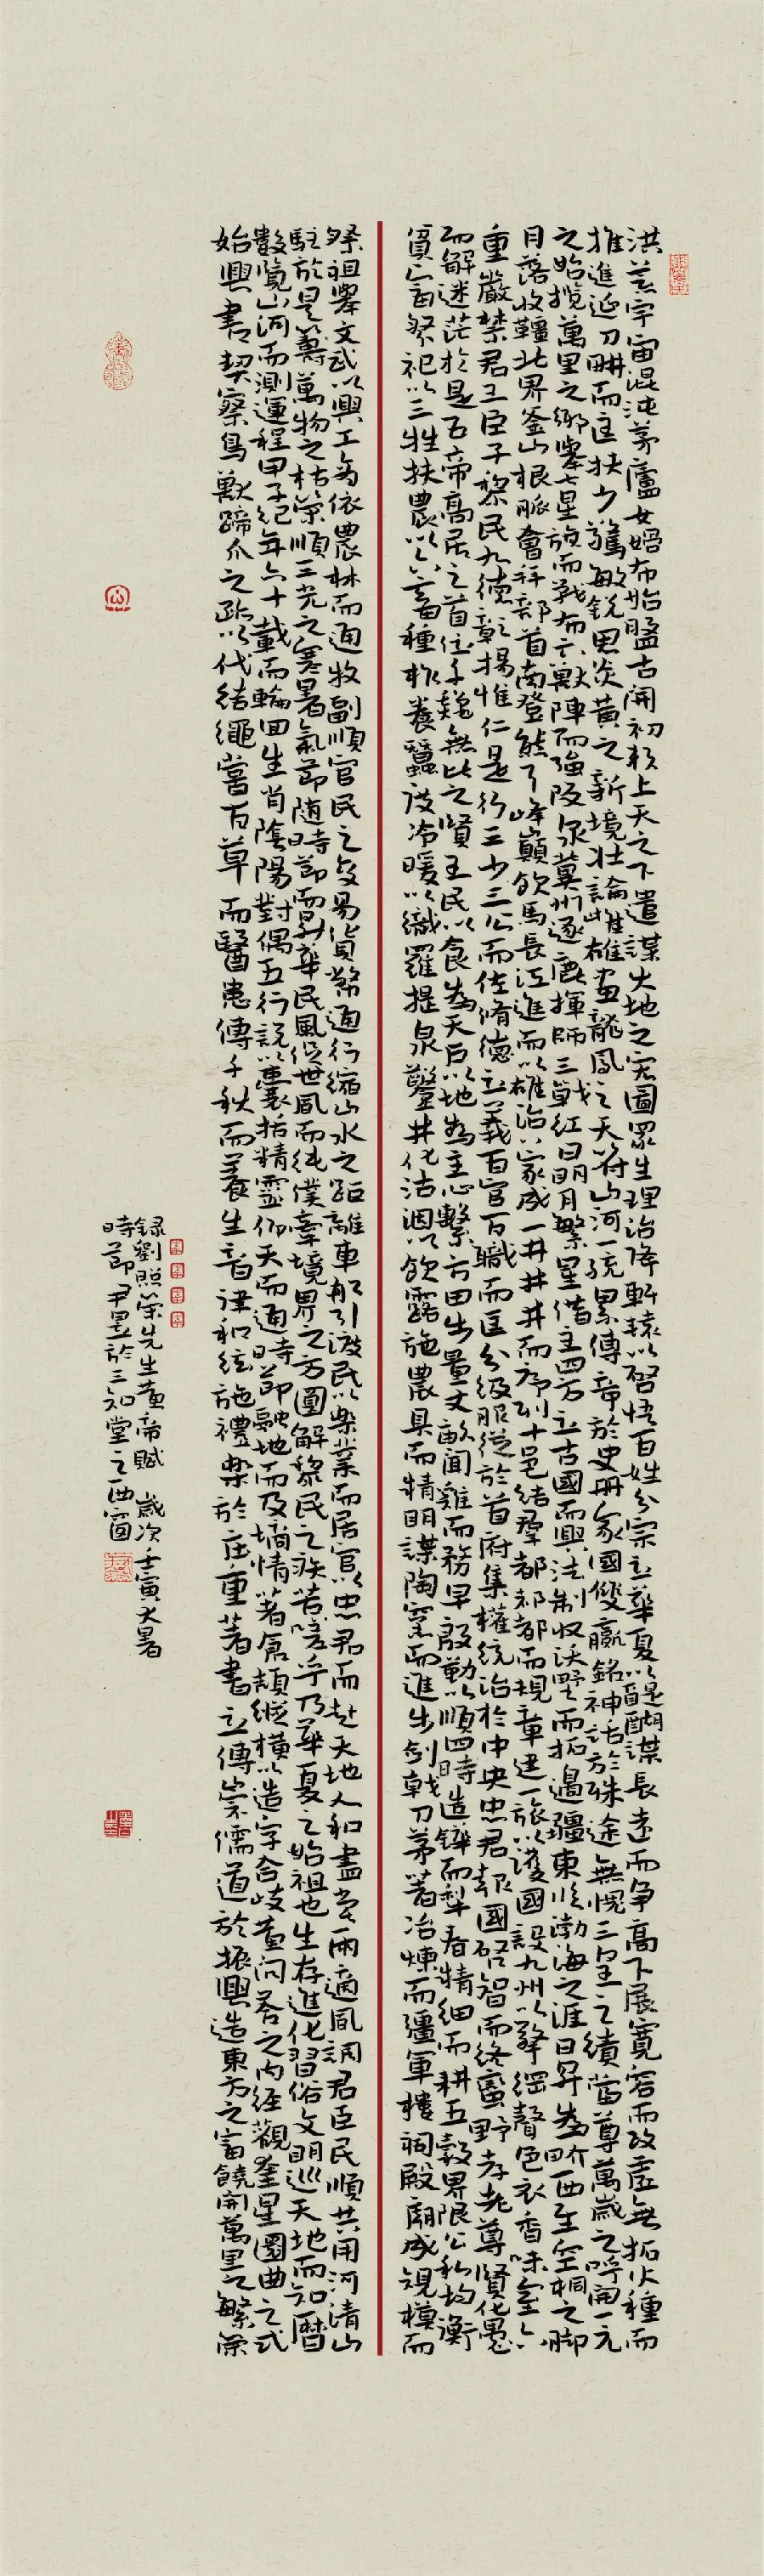 洪荒宇宙混沌茅廬女媧布始盤古開初輅上天之下遣謀大地之宏圖眾生理治降軒轅以啓悟百姓分宗立華夏以醍醐謀長遠而爭高下展寬容而改虛無拓火種而
推進延刀耕而匡扶少驚敏銳思炎黃之新境壯論雄畫龍鳳之天符山河一統累傳帝於史冊家國雙贏銘神話於殊途無愧三皇之績當尊萬歲之呼開一元
之始攬萬里之鄉舉七星旗而戰布六獸陣而強阪泉冀州逐鹿揮師三戰紅日明月繁星借主四方立古國而興法制收沃野而拓邊疆東臨渤海之涯日昇為界西至空桐之腳
月落收韁北界釜山根脈會拜部首南登熊峰巔飲馬長江進而以雄治八家成一井井井而序列十邑結群都都都而規章建一旅以護國設九州以擎綱聲色衣香味室六
重嚴禁君王臣子黎民九德彰揚惟仁是行三少三公而佐脩德立義百官百職而匡分級服從於首府集權統治於中央忠君報國啓智而終蠻野孝老尊賢化愚
而解迷茫於是五帝高居之首位千巍無比之賢王民以食為天后以地為主心繫方田步量丈畝聞雞而務早殷勤以順四時造鏵而犁春精細而耕五穀界限公私均衡
貧富祭祀以三牲扶農以六畜種柞養蠶設冷暖以織羅提泉鑿井化沽涸以飲露施農具而精明謀陶窯而進步劍戟刀茅著冶煉而疆軍樓祠殿廟成規模而
祭祖舉文武以興工為依農林而通牧副順官民之交易貨幣通行縮山水之距離車船引渡民以樂業而居官以忠君而走天地人和盡而兩適風調君臣民順共用河清山
駐於是籌萬物之枯榮順三光之寒暑氣節隨時節而昇華民風從世風而純僕牽境界之方圓解黎民之疾苦嗟乎乃華夏之始祖也生存進化習俗文明巡天地而知曆
數覽山河而測運程甲子紀年六十載而輪回生肖陰陽對偶五行說以囊括精靈仰天而通時節融地而及墒情著倉頡縱橫以造字合岐黃問答之內經觀奎星圜曲之式
始興書契察鳥獸蹄爪之跡以代結繩嘗百草而醫患傳千秋而養生音律和弦施禮樂於庄重著書立傳崇儒道於振興造東方之富饒開萬里之繁榮
錄劉照榮先生黃帝賦 歲次壬寅大暑
時節 尹墨於三知堂之西窗